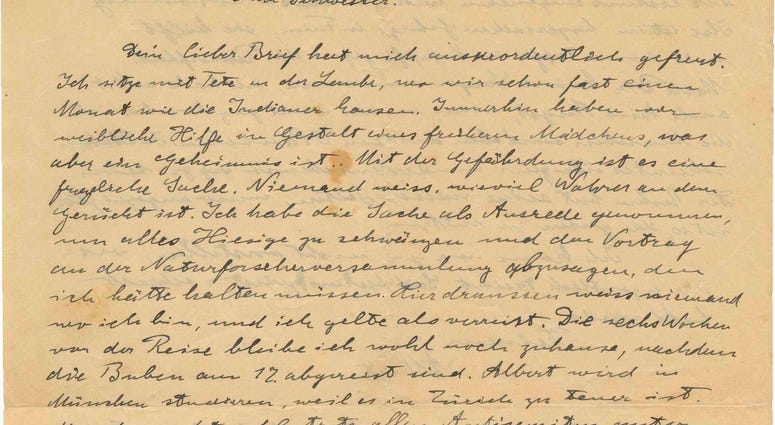 Schwester.
Dein lieber Brief hat mich ausserordentlich gefreut.
Ich sitze mit Tete in der Laube, wo wir schon fast einen
Monat wie die Indianer hausen. Immerhin haben wir
weibliche Hilfe in Gestalt eines früheren Mädchens, was
aber ein Geheimnis ist.. Mit der Gefährdung ist es eine
fragliche Sache. Niemand weiss, wieviel Wahres an dem
Gerücht ist. Ich habe die Sache als Ausrede genommen,
um alles Hiesige zu schwänzen und den Vortrag
an der Naturforscherversammlung abzusagen, den
ich hätte halten müssen. Hier draussen weiss niemand
wo ich bin, und ich gelte als verreist. Die sechs Wochen
vor der Reise bleibe ich wohl noch zuhause, nachdem
die Buben am 12. abgereist sind. Albert wird in
München studieren, weil es in Zürich zu teuer ist.